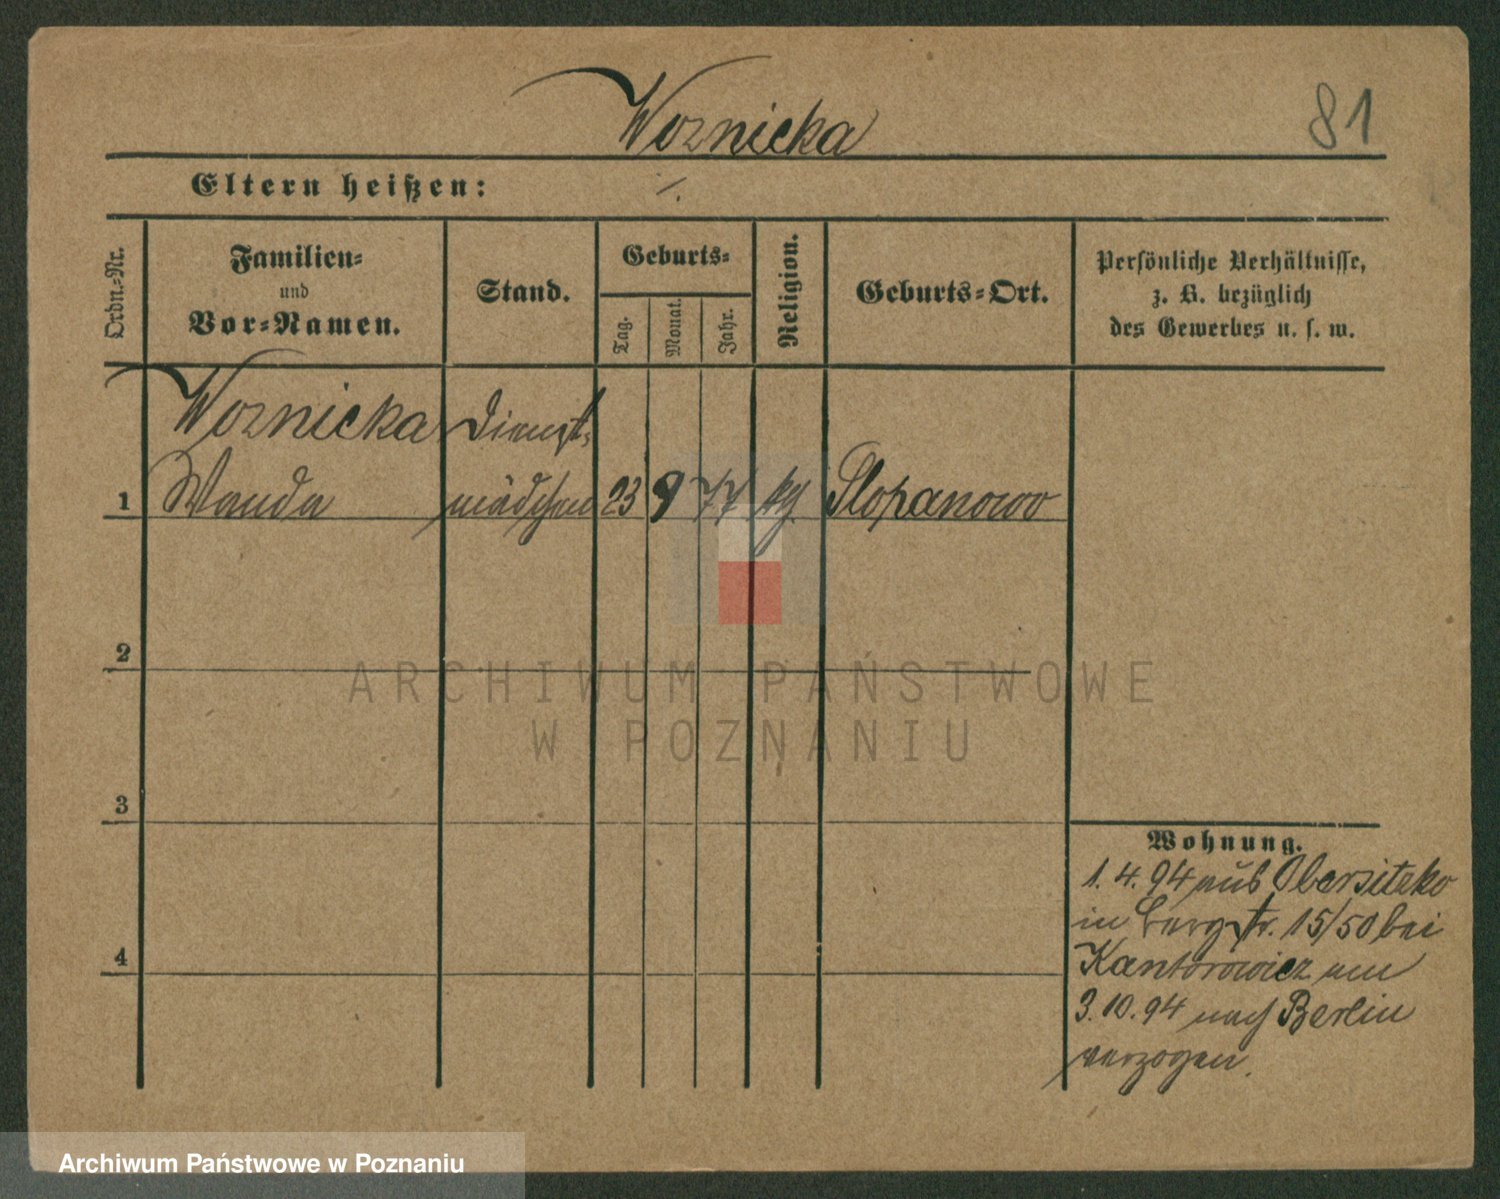 Woznicka
81
Eltern heißen: /.
Ordn.-Nr.
Familien-
und
Vor-Namen.
Stand.
Geburts-
Tag.
Monat.
Jahr.
Religion.
Geburts-Ort.
Persönliche Verhältnisse,
z. B. bezüglich
des Gewerbes u. s. w.
Woznicka Dienst-
1 Wanda mädchen 23 9 77 kg. Slopanowo
2
ARCHIWUM PAŃSTWOWE
W POZNANIU
3
Wohnung.
1. 4. 94 aus Obersitzko
in Bergstr. 15/50 bei
4
Kantorowicz am
3. 10. 94 nach Berlin
verzogen.
Archiwum Państwowe w Poznaniu